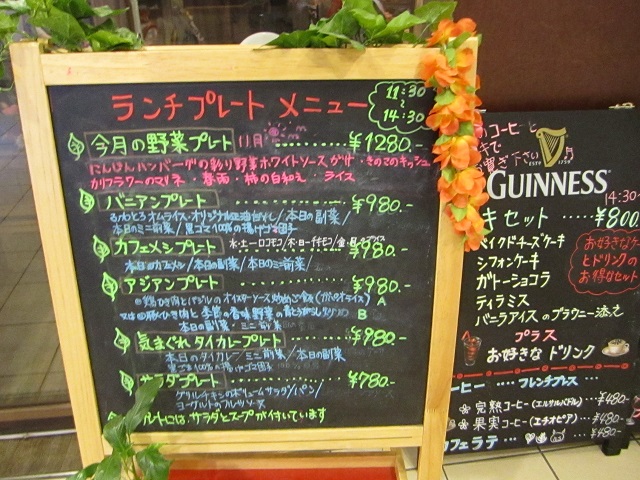 ランチプレート メニュー
11:30
~
14:30
今月の野菜プレート 11月 ¥1280.-
にんじんハンバーグの彩り野菜ホワイトソースがけ・きのこのキッシュ
カリフラワーのマリネ・春雨・柿の白和え・ライス
バニアンプレート ¥980.-
オムライス オリジナル /本日の副菜/
本日のミニ前菜/黒ゴマ 揚げゴマ団子
カフェメシプレート ¥980.-
本日のカフェメシ/本日の副菜/本日のミニ前菜/
アジアンプレート ¥980.-
A
又は 季節の香味野菜の B
本日の副菜・ミニ前菜
気まぐれタイカレープレート ¥980.-
本日のタイカレー/ミニ前菜/本日の副菜
サラダプレート ¥780.-
グリルチキンのボリュームサラダ/パン/
ヨーグルトのフルーツソース
にはサラダとスープが付いています
のコーヒーと
下さい
ESTD 1759
GUINNESS
14:30~
キセット ¥800
ベイクドチーズケーキ
シフォンケーキ
ガトーショコラ
ティラミス
バニラアイスのブラウニー添え
お好きな
とドリンクの
お得なセット
プラス
お好きな ドリンク
コーヒー フレンチプレス
完熟コーヒー(エルサルバドル) ¥480-
果実コーヒー(エチオピア) ¥480-
カフェラテ ¥480-